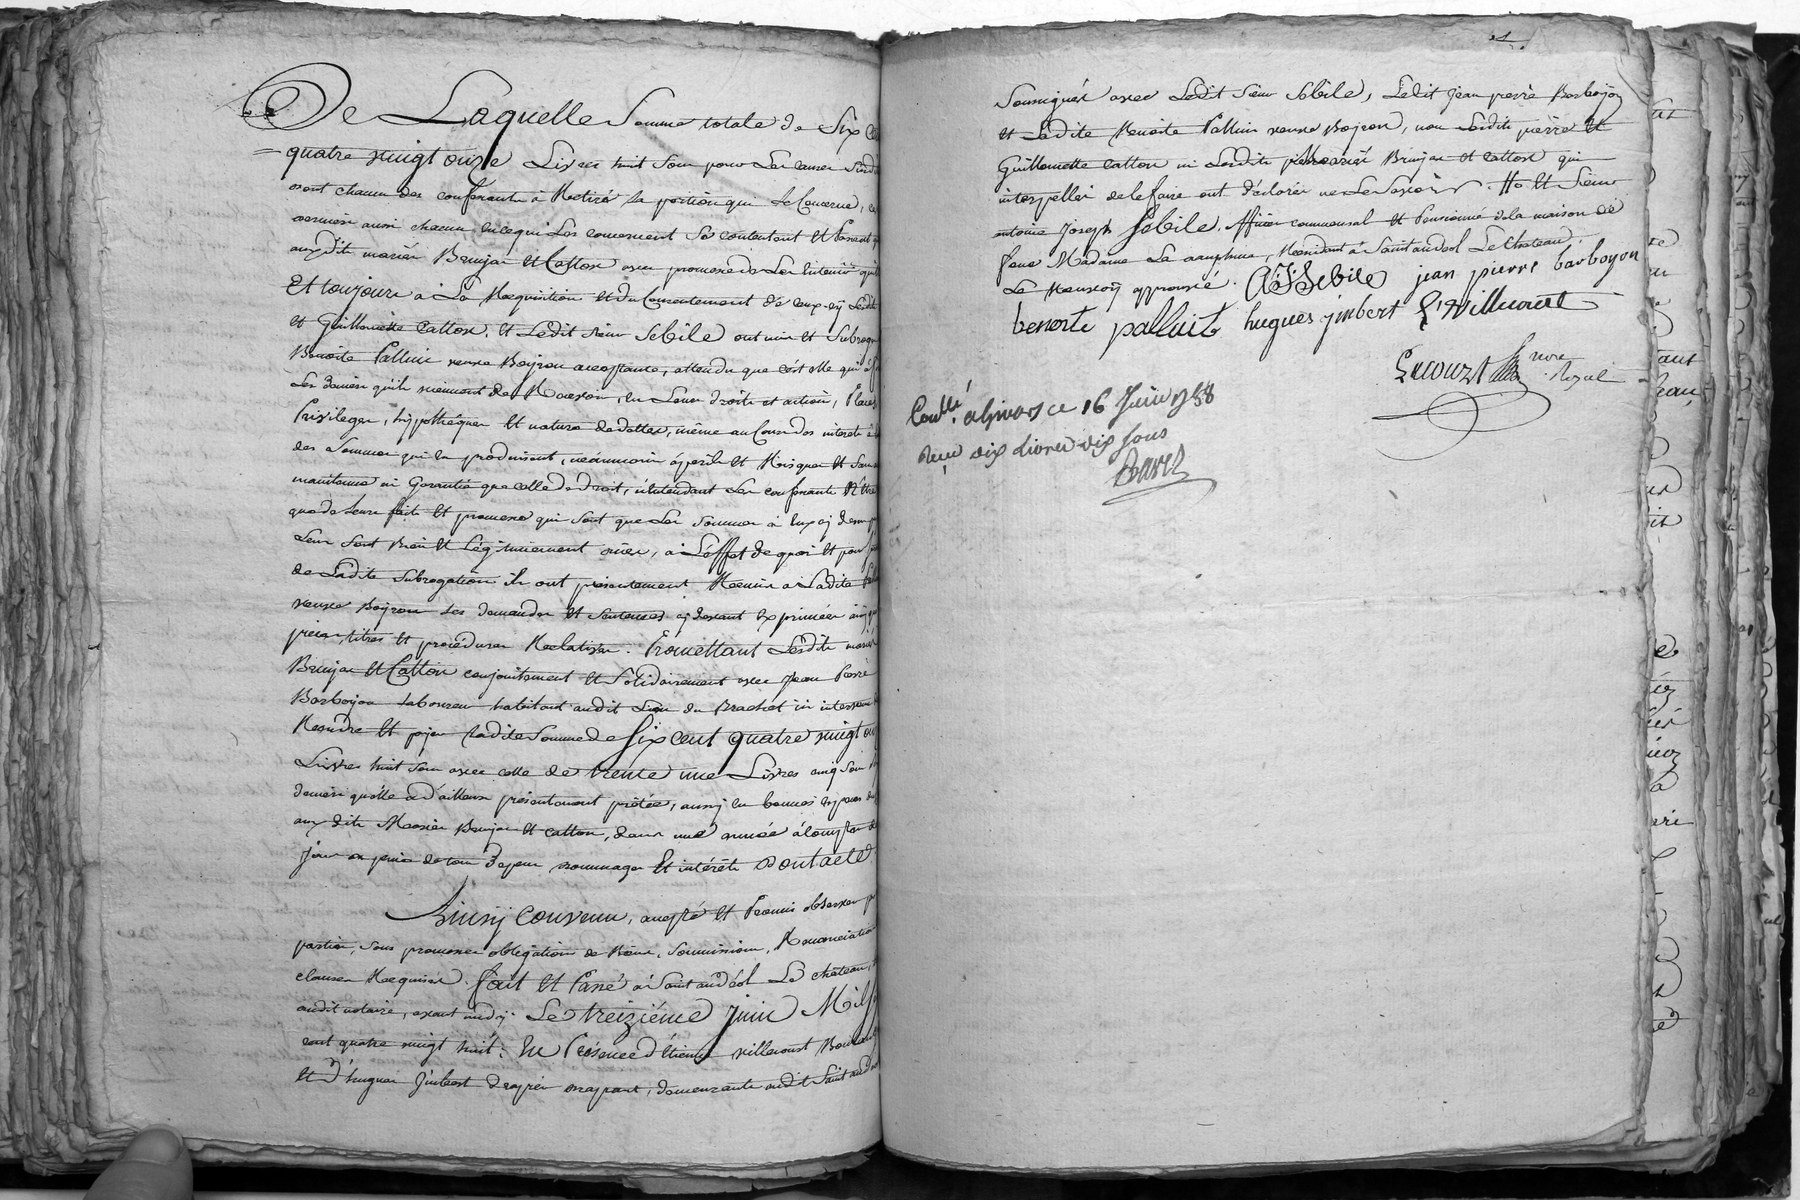 De Laquelle Somme totale de Six Cent
quatre vingt onze Livres huit Sous pour Les causes Susdites
sont chacun des confessants à Retiré La portion qui Le Concerne, ce
dernier aussi chacun en ce qui Les concernent Se contentent et passent
auxdits mariés Brunjas et Catton avec promesse de Les en tenir quitte
Et toujours à La Requisition et du Consentement de ceux-cy Lesdits
et Guillomette Catton, et Ledit Sieur Sebile ont mis et Subrogé
Benoite Palluis veuve Bojron acceptante, attendu que c'est elle qui a
Les deniers qu'ils viennent de Recevoir, en Leurs droits et actions, Places
Privileges, hypothêques et nature de dettes, même au Cours des interets
des Sommes qui en produisent, néanmoin à perils et Risques et Sans
maintenue ni Garantie que celle de droit, n'entendant Les confessants N'être
que de Leurs faits et promesses qui Sont que Les Sommes à eux cy dessus
Leur Sont Bien et Légitimement dües, à L'éffet de quoi et pour
de Ladite Subrogation ils ont présentement Remis à Ladite
veuve Bojron Les demandes et Sentences cy devant Exprimées
pieces, titres et procédures Relatives. Promettant Lesdits mariés
Brunjas et Catton conjointement et Solidairement avec Jean Pierre
Barbojon Laboureur habitant audit Lieu du Brachet ici intervenu
Rendre et payer Ladite Somme de Six cent quatre vingt onze
Livres huit Sous avec celle de trente une Livres cinq Sous
deniers quelle a d'ailleurs présentement prêtée, aussy en bonnes Especes
auxdits Mariés Brunjas et Catton, dans une année à Compter de
jour a peine de tous Depens dommages et intérêts Dont acte.
Ainsy Convenu, accepté et Promis observer par
parties, Sous promesses obligation de Biens, Soumissions, Renonciations
clauses Requises. fait et Passé à Saint andéol Le château,
audit notaire, avant midy. Le treiziéme Juin Mil Sept
cent quatre vingt huit; En Présence d'Etienne villecourt
et d'hugues Jmbert drapier drapant, demeurants audit Saint andéol
Soussignés avec Ledit Sieur Sebile, Ledit Jean pierre Barbojon
et Ladite Benoite Palluis veuve Bojron, non Lesdits pierre et
Guillomette Catton ni Lesdits mariés Brunjas et Catton qui
interpellés de le faire ont déclaré ne Le Savoir. Ho et Sieur
antoine Joseph Sebile. officier commensal et Pensionné de la maison de
feue Madame La dauphine, Residant à Saint andéol Le Chateau
Le Renvoy approuvé. A: J: Sebile jean pierre barboyon
benoite palluit hugues jmbert E. Villecourt
Lecourt nore. Royal
Conllé. à Givors ce 16 Juin 1788
Reçu dix Livres dix Sous